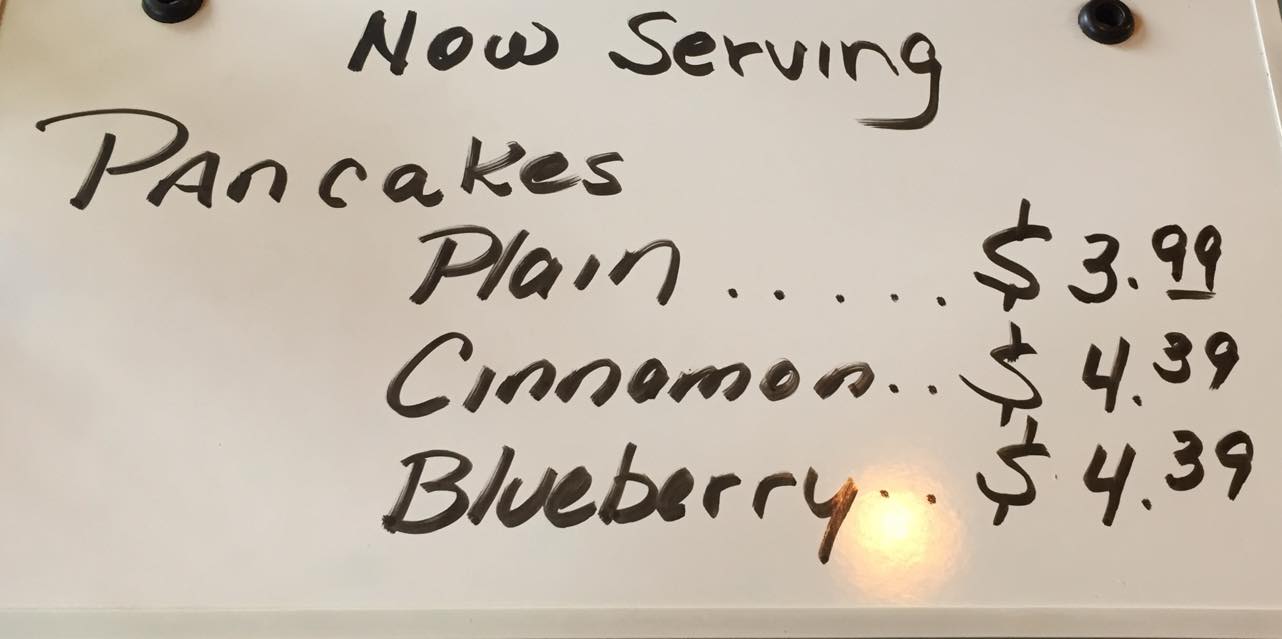 Now Serving
Pancakes
Plain ..... $3.99
Cinnamon.. $4.39
Blueberry.. $4.39